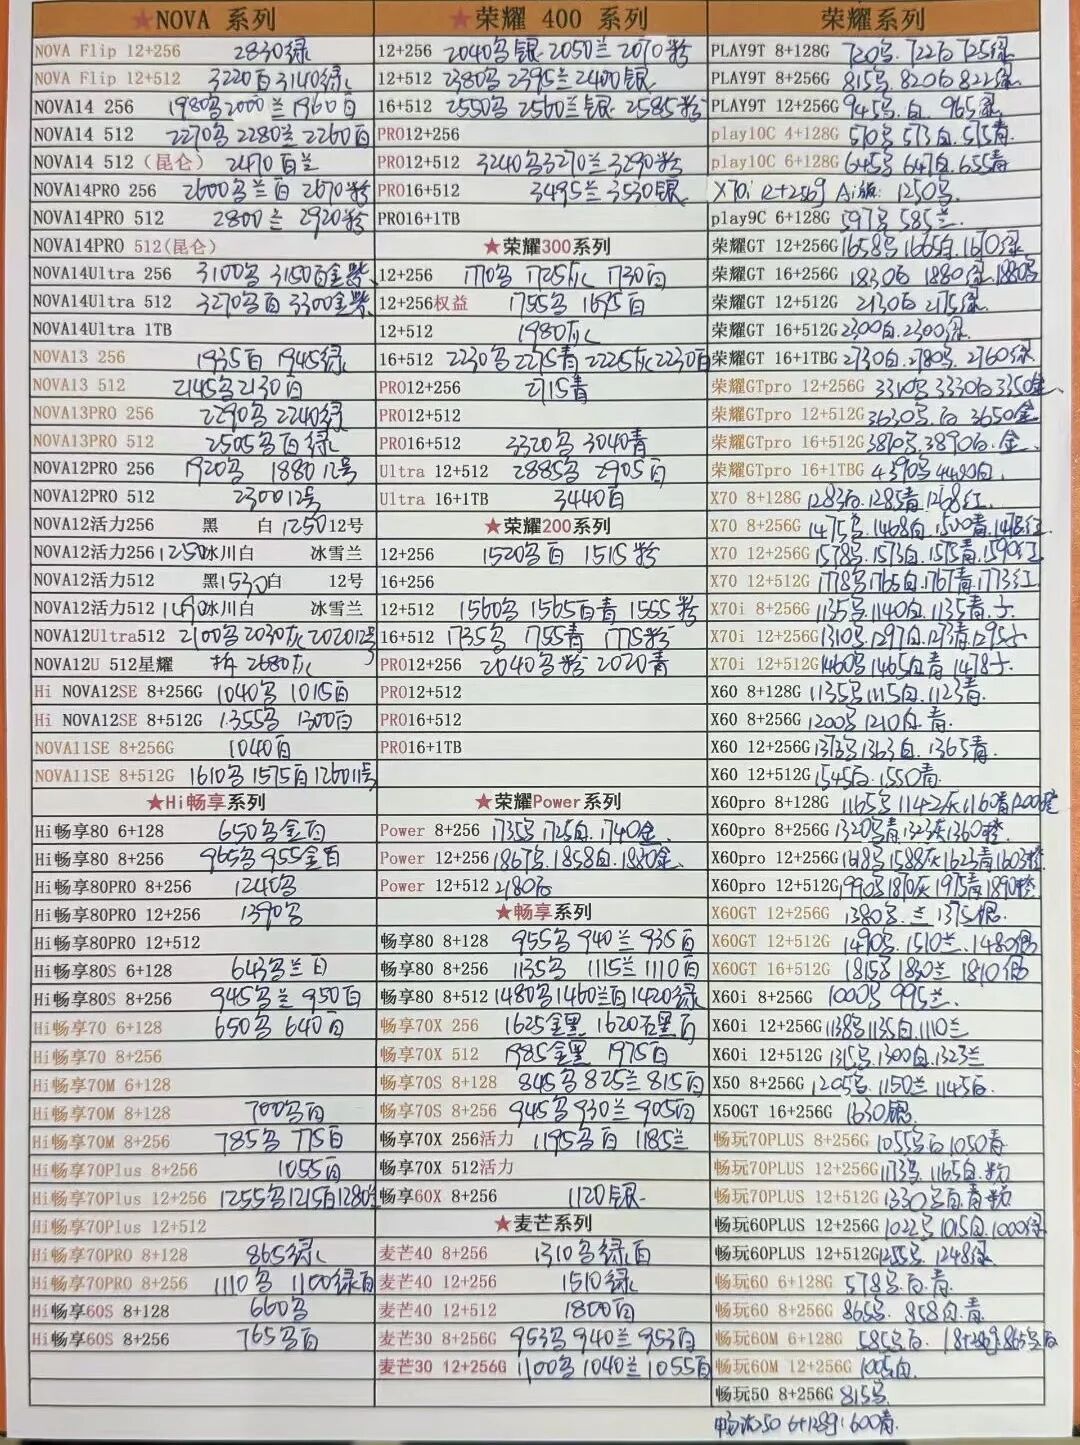 ★NOVA 系列
NOVA Flip 12+256 2830绿
NOVA Flip 12+512 3220白 3140绿
NOVA14 256 1980黑 2000兰 1960白
NOVA14 512 2270黑 2280兰 2260白
NOVA14 512（昆仑） 2470白兰
NOVA14PRO 256 2600黑兰白 2670粉
NOVA14PRO 512 2800兰 2920粉
NOVA14PRO 512(昆仑)
NOVA14Ultra 256 3100黑 3150白金紫
NOVA14Ultra 512 3270黑白 3300金紫
NOVA14Ultra 1TB
NOVA13 256 1935白 1945绿
NOVA13 512 2145黑 2130白
NOVA13PRO 256 2290黑 2240绿
NOVA13PRO 512 2505黑白绿
NOVA12PRO 256 1920黑 1880 12号
NOVA12PRO 512 2300 12号
NOVA12活力256 黑 白 1250 12号
NOVA12活力256 1250 冰川白 冰雪兰
NOVA12活力512 黑 1530 白 12号
NOVA12活力512 1490 冰川白 冰雪兰
NOVA12Ultra512 2100黑 2030灰 2020 12号
NOVA12U 512星耀 2680灰
Hi NOVA12SE 8+256G 1040黑 1015白
Hi NOVA12SE 8+512G 1355黑 1300白
NOVA11SE 8+256G 1040白
NOVA11SE 8+512G 1610黑 1575白 1260 11号
★Hi畅享系列
Hi畅享80 6+128 650黑金白
Hi畅享80 8+256 965黑 955金白
Hi畅享80PRO 8+256 1240黑
Hi畅享80PRO 12+256 1390黑
Hi畅享80PRO 12+512
Hi畅享80S 6+128 643黑兰白
Hi畅享80S 8+256 945黑兰 950白
Hi畅享70 6+128 650黑 640白
Hi畅享70 8+256
Hi畅享70M 6+128
Hi畅享70M 8+128 700黑白
Hi畅享70M 8+256 785黑 775白
Hi畅享70Plus 8+256 1055白
Hi畅享70Plus 12+256 1255黑 1215白 1280兰
Hi畅享70Plus 12+512
Hi畅享70PRO 8+128 865绿
Hi畅享70PRO 8+256 1110黑 1100绿白
Hi畅享60S 8+128 660黑
Hi畅享60S 8+256 765黑白
★荣耀 400 系列
12+256 2040黑银 2050兰 2070粉
12+512 2380黑 2395兰 2400银
16+512 2550黑 2560兰银 2585粉
PRO12+256
PRO12+512 3240黑 3270兰 3290粉
PRO16+512 3495兰 3530银
PRO16+1TB
★荣耀300系列
12+256 1710黑 1725灰 1730白
12+256权益 1755黑 1695白
12+512 1980灰
16+512 2230黑 2275青 2225灰 2230白
PRO12+256 2715青
PRO12+512
PRO16+512 3320黑 3040青
Ultra 12+512 2885黑 2905白
Ultra 16+1TB 3440白
★荣耀200系列
12+256 1520黑白 1515粉
16+256
12+512 1560黑 1565白青 1555粉
16+512 1735黑 1755青 1775粉
PRO12+256 2040黑粉 2020青
PRO12+512
PRO16+512
PRO16+1TB
★荣耀Power系列
Power 8+256 1735黑. 1725白. 1740金.
Power 12+256 1867黑. 1858白. 1880金.
Power 12+512 2180白
★畅享系列
畅享80 8+128 955黑 940兰 935白
畅享80 8+256 1135黑 1115兰 1110白
畅享80 8+512 1480黑 1460兰白 1420绿
畅享70X 256 1625金黑 1620 黑白
畅享70X 512 1985金黑 1975白
畅享70S 8+128 845黑 825兰 815白
畅享70S 8+256 945黑 930兰 905白
畅享70X 256活力 1195黑白 1185兰
畅享70X 512活力
畅享60X 8+256 1120银
★麦芒系列
麦芒40 8+256 1310黑绿白
麦芒40 12+256 1510绿
麦芒40 12+512 1800白
麦芒30 8+256G 953黑 940兰 953白
麦芒30 12+256G 1100黑 1040兰 1055白
荣耀系列
PLAY9T 8+128G 720黑. 722白 725绿
PLAY9T 8+256G 815黑. 820白 822绿.
PLAY9T 12+256G 945黑. 白. 965绿.
play10C 4+128G 570黑 573白. 575青.
play10C 6+128G 645黑 647白. 655青
X70i 12+256g Ai版: 1250黑.
play9C 6+128G 597黑 585兰.
荣耀GT 12+256G 1658黑 1665白. 1670绿
荣耀GT 16+256G 1830白 1880绿. 1880黑
荣耀GT 12+512G 2130白 2175绿.
荣耀GT 16+512G 2300白. 2300绿.
荣耀GT 16+1TBG 2730白. 2780黑. 2760绿.
荣耀GTpro 12+256G 3310黑 3330白 3350金.
荣耀GTpro 12+512G 3630黑. 白 3650金
荣耀GTpro 16+512G 3870黑. 3890白. 金.
荣耀GTpro 16+1TBG 4390黑 4420白.
X70 8+128G 1283白. 1285青 1268红.
X70 8+256G 1475黑. 1468白. 1500青. 1478红
X70 12+256G 1578黑. 1573白. 1575青. 1590红
X70 12+512G 1778黑 1765白. 1767青. 1773红
X70i 8+256G 1135黑. 1140白. 1135青. 紫.
X70i 12+256G 1310黑. 1297白. 1293青. 1295紫
X70i 12+512G 1460黑 1465白青 1478紫.
X60 8+128G 1135黑 1115白. 1123青.
X60 8+256G 1200黑 1210白. 青.
X60 12+256G 1373黑 1363白. 1365青.
X60 12+512G 1545白. 1550青.
X60pro 8+128G 1165黑 1142灰 1160青 1200橙
X60pro 8+256G 1320黑青 1323灰 1360橙
X60pro 12+256G 1618黑 1588灰 1623青 1603橙
X60pro 12+512G 1990黑 1870灰 1975青 1890橙
X60GT 12+256G 1380黑. 兰 1375银.
X60GT 12+512G 1490黑. 1510兰. 1480银
X60GT 16+512G 1815黑 1830兰 1810银
X60i 8+256G 1000黑 995兰.
X60i 12+256G 1138黑 1135白. 1110兰
X60i 12+512G 1315黑. 1300白. 1323兰
X50 8+256G 1205黑. 1150兰 1145白.
X50GT 16+256G 1630银.
畅玩70PLUS 8+256G 1055黑白 1050青
畅玩70PLUS 12+256G 1173黑. 1165白. 粉
畅玩70PLUS 12+512G 1330黑白. 青 粉
畅玩60PLUS 12+256G 1022黑 1015白. 1000绿
畅玩60PLUS 12+512G 1255黑. 1248绿.
畅玩60 6+128G 578黑. 白. 青.
畅玩60 8+256G 865黑. 858白. 青.
畅玩60M 6+128G 585黑白. (8+256g: 865黑白
畅玩60M 12+256G 1005白.
畅玩50 8+256G 815黑
畅玩50 6+128g: 600青.